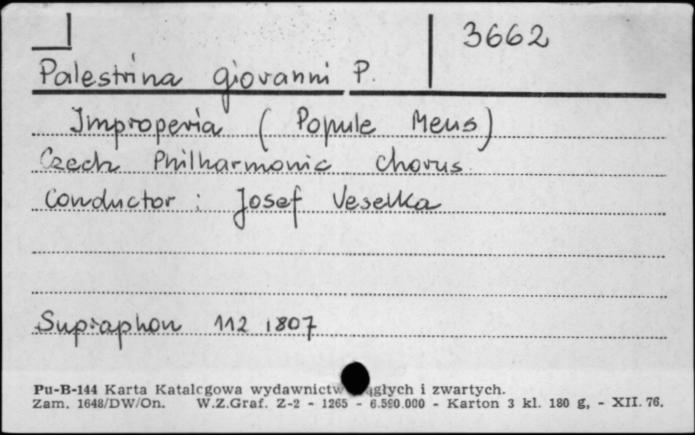 3662
Palestrina Giovanni P.
Improperia (Popule Meus)
Czech Philharmonic Chorus
Conductor: Josef Veselka
Supraphon 112 1807
Pu-B-144 Karta Katalogowa wydawnictw i zwartych.
Zam. 1648/DW/On. W.Z.Graf. Z-2 - 1265 - 6.590.000 - Karton 3 kl. 180 g, - XII. 76.